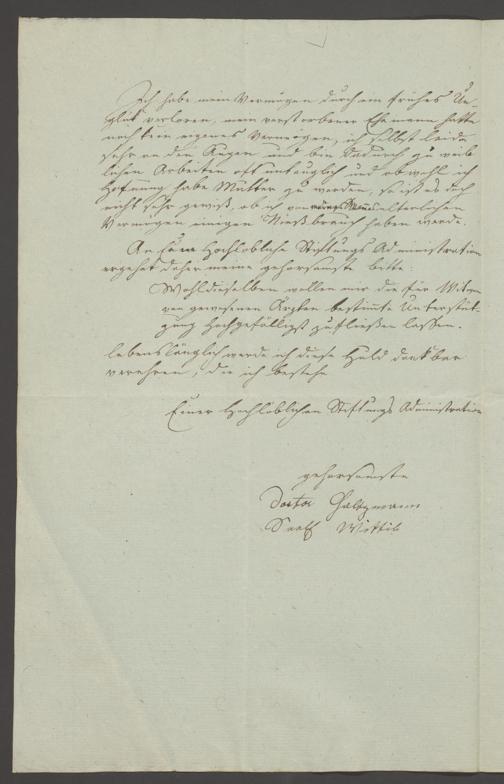 Ich habe mein Vermögen durch ein frühes Un-
glük verloren, mein verstorbener Ehemann hatte
noch kein eigenes Vermögen, ich selbst leide
sehr an den Augen und bin dadurch zu weib
lichen Arbeiten oft untauglich und obwohl ich
Hofnung habe Mutter zu werden, so ist es doch
nicht sehr gewiß, ob ich von meines Mannes elterlichem
Vermögen einigen Nießbrauch haben werde.
An Eine Hochlöbliche Stiftungs Administration
ergehet daher meine gehorsamste bitte:
Wohldieselben wollen mir die für Witwen
von gewesenen Ärzten bestimte Unterstüt-
zung Hochgefälligst zufließen lassen.
Lebenslänglich werde ich diese Huld dankbar
verehren, die ich bestehe
Einer Hochlöblichen Stiftungs Administration
gehorsamste
Doctor Salzmann
Seel Wittib